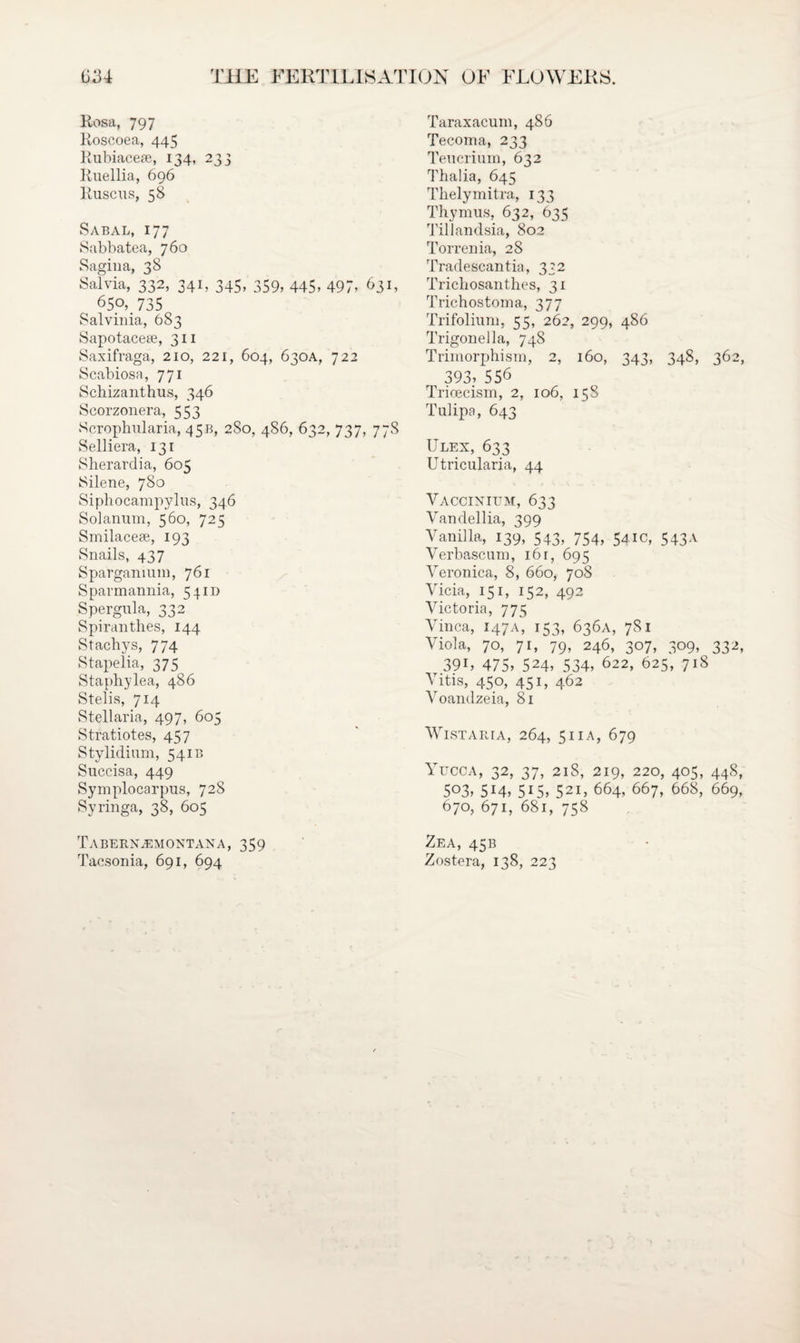 634 THE FERTILISATION OF FLOWERS.
Rosa, 797
Roscoea, 445
Rubiaceæ, 134, 233
Ruellia, 696
Ruscus, 58
SABAL, 177
Sabbatea, 760
Sagina, 38
Salvia, 332, 341, 345, 359, 445, 497, 631,
650, 735
Salvinia, 683
Sapotaceæ, 311
Saxifraga, 210, 221, 604, 630A, 722
Scabiosa, 771
Schizanthus, 346
Scorzonera, 553
Scrophularia, 45B, 280, 486, 632, 737, 778
Selliera, 131
Sherardia, 605
Silene, 780
Siphocampylus, 346
Solanum, 560, 725
Smilaceæ, 193
Snails, 437
Sparganium, 761
Sparmannia, 541D
Spergula, 332
Spiranthes, 144
Stachys, 774
Stapelia, 375
Staphylea, 486
Stelis, 714
Stellaria, 497, 605
Stratiotes, 457
Stylidium, 541B
Succisa, 449
Symplocarpus, 728
Syringa, 38, 605
TABERNÆMONTANA, 359
Tacsonia, 691, 694
Taraxacum, 486
Tecoma, 233
Teucrium, 632
Thalia, 645
Thelymitra, 133
Thymus, 632, 635
Tillandsia, 802
Torrenia, 28
Tradescantia, 332
Trichosanthes, 31
Trichostoma, 377
Trifolium, 55, 262, 299, 486
Trigonella, 748
Trimorphism, 2, 160, 343, 348, 362,
393, 556
Triœcism, 2, 106, 158
Tulipa, 643
ULEX, 633
Utricularia, 44
VACCINIUM, 633
Vandellia, 399
Vanilla, 139, 543, 754, 541C, 543A
Verbascum, 161, 695
Veronica, 8, 660, 708
Vicia, 151, 152, 492
Victoria, 775
Vinca, 147A, 153, 636A, 781
Viola, 70, 71, 79, 246, 307, 309, 332,
391, 475, 524, 534, 622, 625, 718
Vitis, 450, 451, 462
Voandzeia, 81
WISTARIA, 264, 511A, 679
YUCCA, 32, 37, 218, 219, 220, 405, 448,
503, 514, 515, 521, 664, 667, 668, 669,
670, 671, 681, 758
ZEA, 45B
Zostera, 138, 223